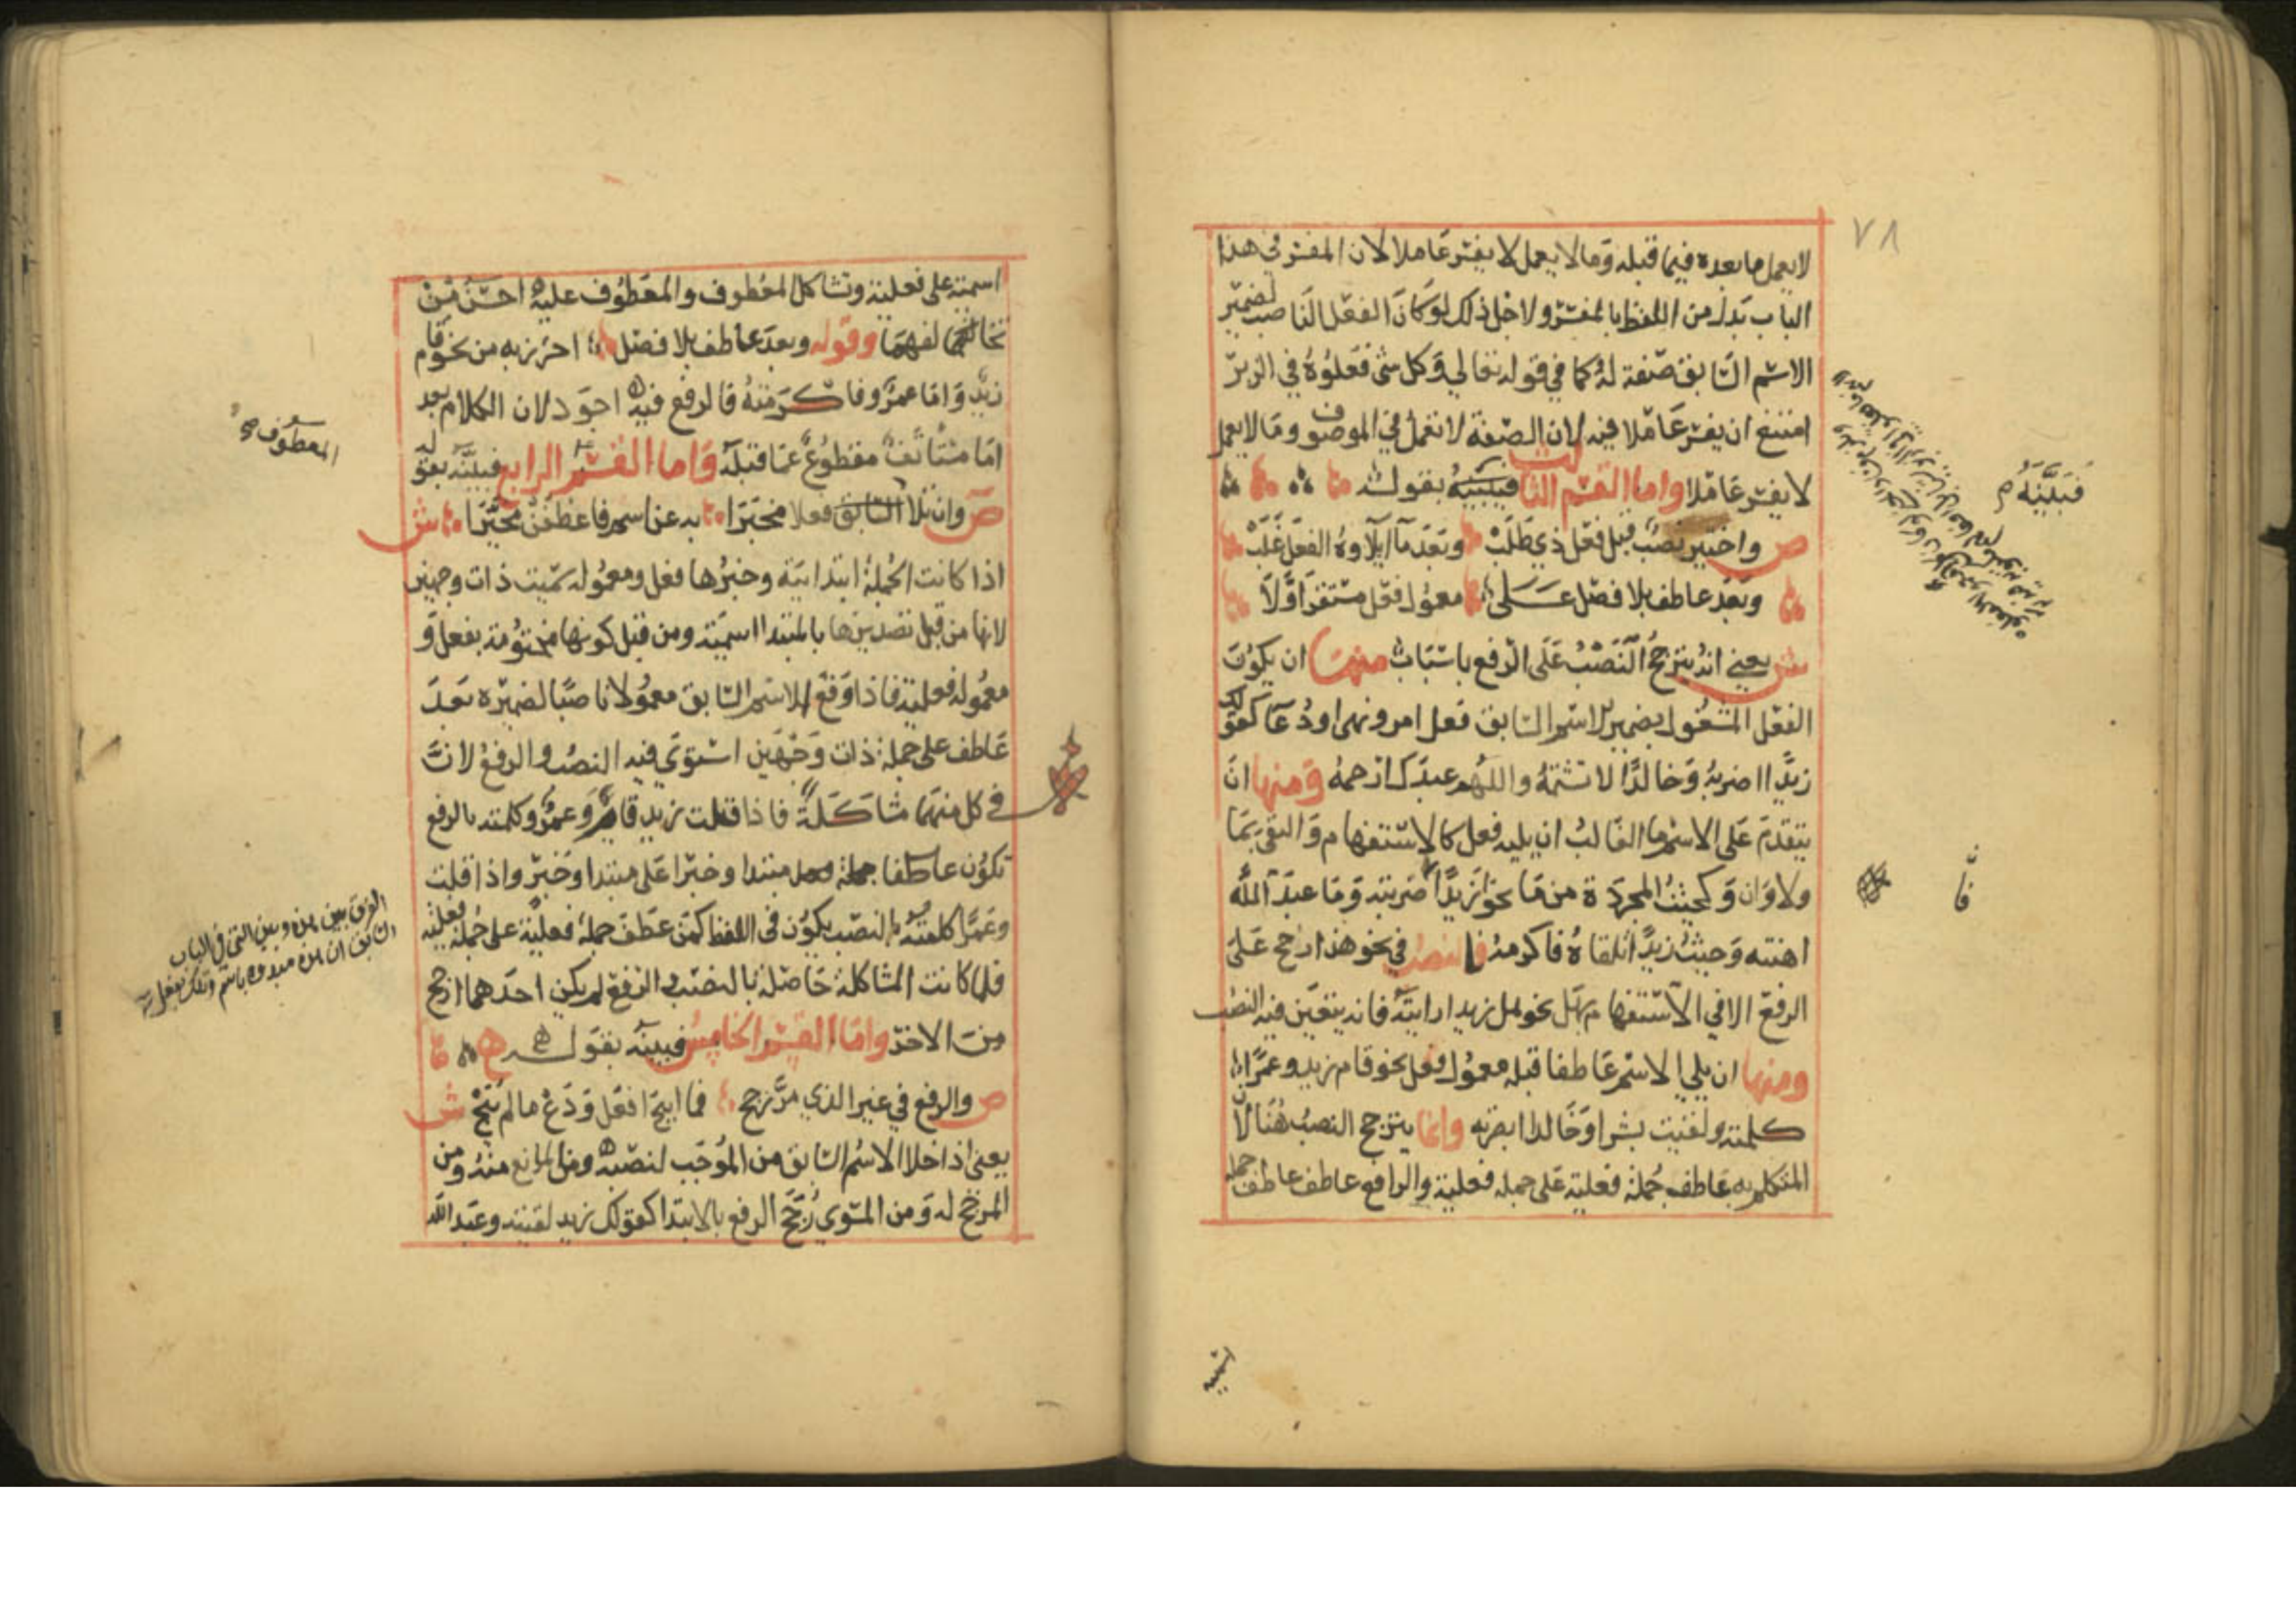 ٧٨
لا يعمل ما بعده فيما قبله وما لا يعمل لا يفسر عاملا لان المفسر في هذا
الباب بدل من اللفظ بالمفسر ولاجل ذلك لو كان الفعل الناصب لضمير
الاسم السابق صفة له كما في قوله تعالى وكل شئ فعلوه في الزبر
امتنع ان يفسر عاملا فيه لان الصفة لا تعمل في الموصوف وما لا يعمل
لا يفسر عاملا واما القسم الثالث فبينه بقوله
ص واختير نصب قبل فعل ذي طلب وبعد ما ايلاوه الفعل غلب
وبعد عاطف بلا فصل على معمول فعل مستقر اولا
ش يعني انه يترجح النصب على الرفع باسباب منها ان يكون
الفعل المشغول بضمير الاسم السابق فعل امر او نهى او دعا كقولك
زيدا اضربه وخالدا لا تشتمه واللهم عبدك ارحمه ومنها ان
يتقدم على الاسم ما الغالب ان يليه فعل كالاستفهام والنفي بما
ولا وان وكحيث المجردة من ما نحو ازيدا ضربته وما عبد الله
اهنته وحيث زيدا تلقاه فاكرمه فالنصب في نحو هذا ارجح على
الرفع الا في الاستفهام بهل نحو هل زيدا رايته فانه يتعين فيه النصب
ومنها ان يلي الاسم عاطفا قبله معمول فعل نحو قام زيد وعمرا
كلمته ولقيت بشرا وخالدا ابصرته وانما يترجح النصب هنا لان
المتكلم به عاطف جملة فعلية على جملة فعلية والرافع عاطف جملة
فبينه
اسمية
اسمية على فعلية وتشاكل المعطوف والمعطوف عليه احسن من
تخالفهما وقوله وبعد عاطف بلا فصل احترز به من نحو قام
زيد واما عمرو فاكرمته فالرفع فيه اجود لان الكلام بعد
اما مستانف مقطوع عما قبله واما القسم الرابع فبينه بقوله
ص وان تلا السابق فعلا مخبرا به عن اسم فاعطفن مخيرا ش
اذا كانت الجملة ابتدائية وخبرها فعل ومعموله سميت ذات وجهين
لانها من قبل تصديرها بالمبتدا اسمية ومن قبل كونها مختومة بفعل و
معموله فعلية فاذا وقع الاسم السابق معمولا ناصبا لضميره بعد
عاطف على جملة ذات وجهين استوى فيه النصب والرفع لان
في كل منهما مشاكلة فاذا قلت زيد قام وعمرو كلمته بالرفع
تكون عاطفا جملة مبتدا وخبرا على مبتدا وخبر واذا قلت
وعمرا كلمته بالنصب يكون في اللفظ كمن عطف جملة فعلية على جملة فعلية
فلما كانت المشاكلة حاصلة بالنصب والرفع لم يكن احدهما ارجح
من الاخر واما القسم الخامس فبينه بقوله
ص والرفع في غير الذي مر رجح فما ابيح افعل ودع ما لم يبح ش
يعني اذا خلا الاسم السابق من الموجب لنصبه ومن المانع منه ومن
المرجح له ومن المسوي رجح الرفع بالابتدا كقولك زيد لقيته وعبد الله
المعطوف
الفرق بين هذه وبين التي في الباب
السابق ان هذه مبدوه باسم وتلك بفعل